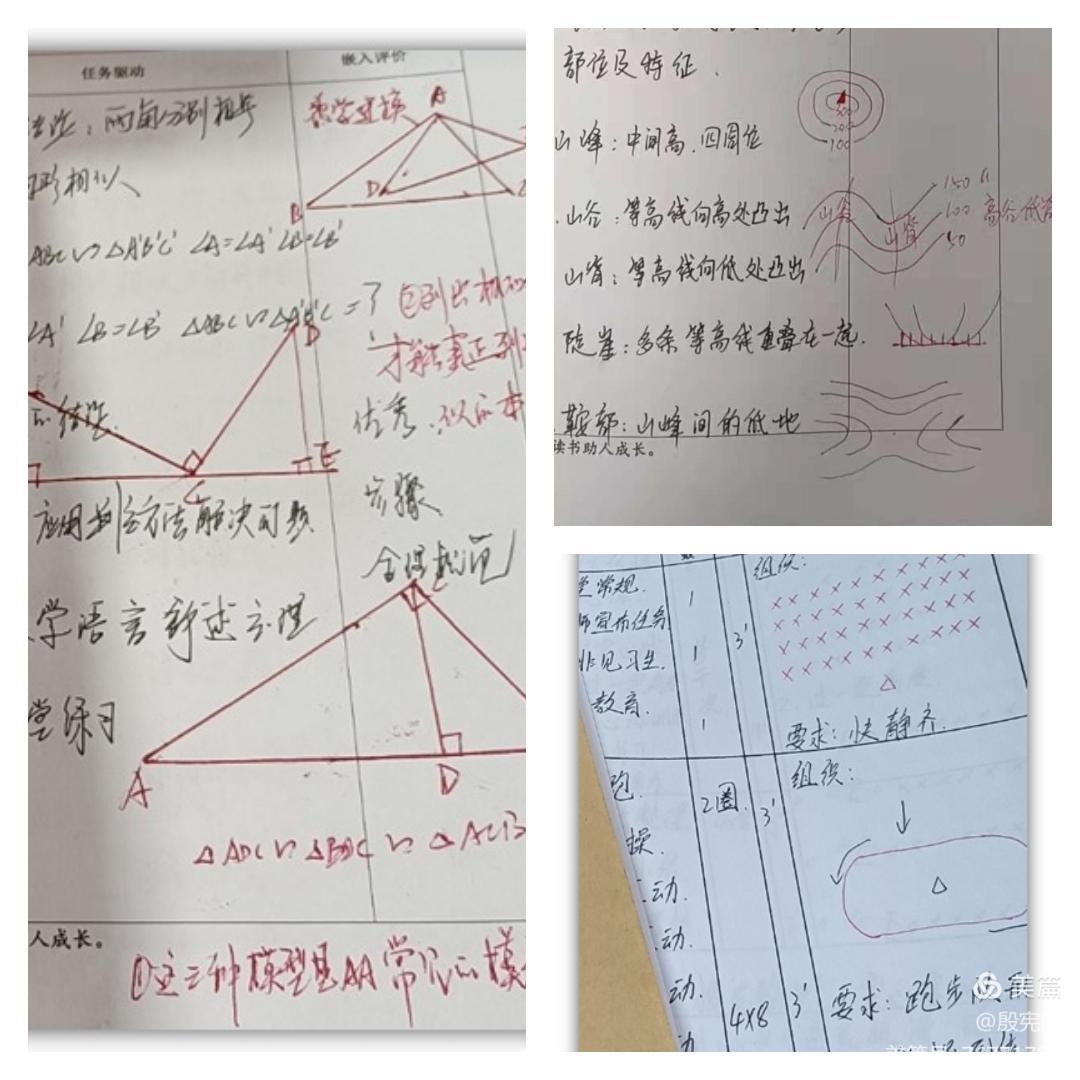 任务驱动
嵌入评价
两角分别相等
教学建议
A
形相似
B
D
ABC∽△A'B'C' ∠A=∠A' ∠B=∠B'
∠A' ∠B=∠B' △ABC∽△A'B'C'=?
D
才能真正
的结论.
优秀.
C
E
应用判定方法解决问题
步骤
合理规范
学语言叙述定理
堂练习
A
D
△ADC∽△BDC∽△ACB
人成长。
①这三种模型是AA常见的模
部位及特征.
300
200
100
山峰:中间高.四周位
山谷:等高线向高处凸出
山谷
山脊
150
100
50
山脊:等高线向低处凸出
陡崖:多条等高线重叠在一起.
鞍部:山峰间的低地
读书助人成长。
常规.
师宣布任务
非见习生.
教育.
1
1
1
3'
组织:
××××××××××
××××××××××
××××××××××
××××××××××
△
要求:快静齐.
跑.
2圈.
3'
组织:
操.
动.
动.
△
动.
4×8
3'
要求:跑步
动
美篇
@殷宪